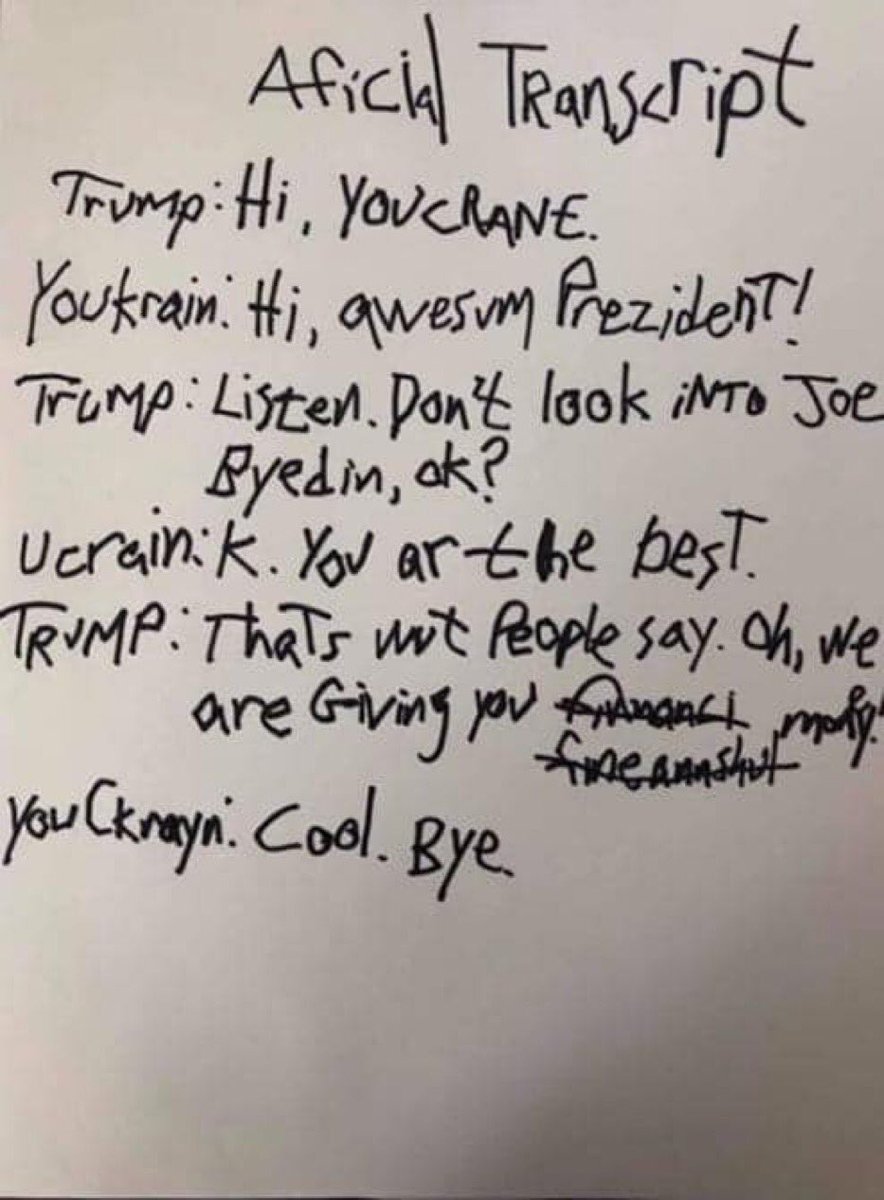 Aficial Transcript
Trump: Hi, YOUCRANE.
Youkrain: Hi, awesum Prezident!
Trump: Listen. Don't look iNTo Joe
Byedin, ok?
Ucrain: K. You ar the best.
TRUMP: ThaTs wut People say. Oh, we
are Giving you
fineannshul
YouCkrayn: Cool. Bye.